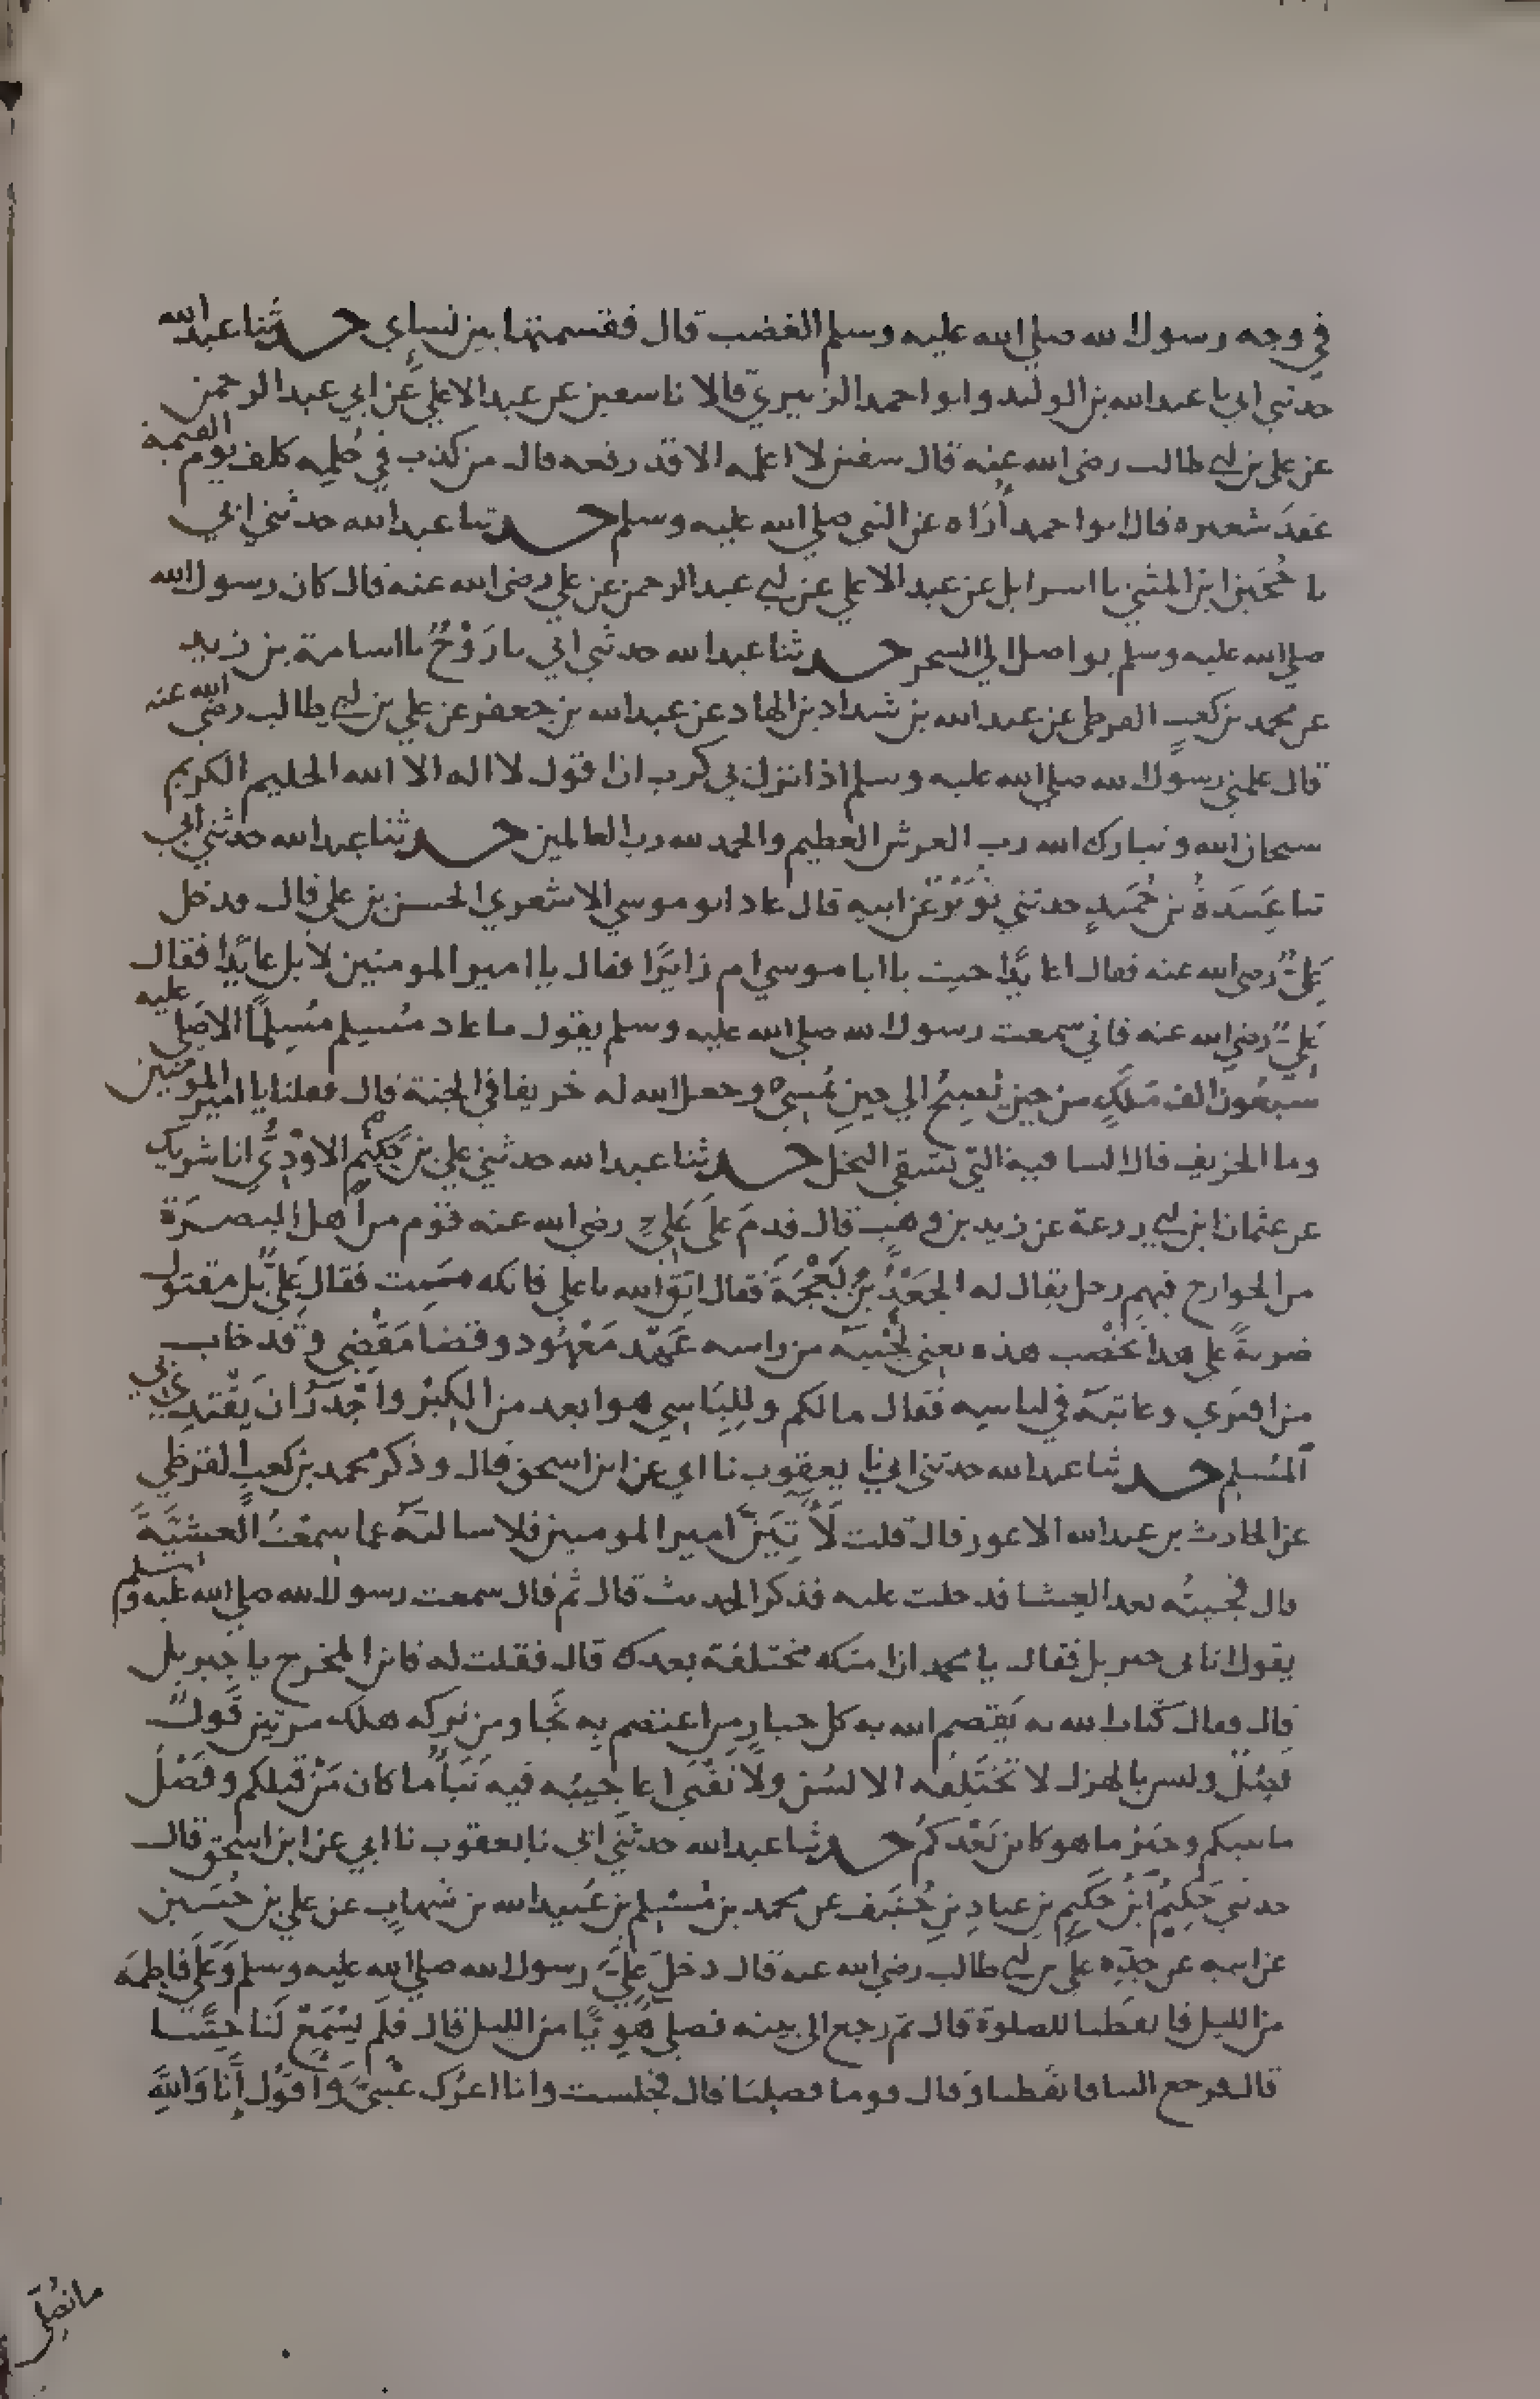 في وجه رسول الله صلي الله عليه وسلم الغضب قال فقسمتها بين نسايي حدثنا عبد الله
حدثني ابي نا عبد الله بن الوليد وابو احمد الزبيري قالا نا سفين عن عبد الاعلي عن ابي عبد الرحمن
عن علي بن ابي طالب رضي الله عنه قال سفين لا اعلمه الا قد رفعه قال من كذب في حلمه كلف يوم القيمة
عقد شعيرة قال ابو احمد أراه عن النبي صلي الله عليه وسلم حدثنا عبد الله حدثني ابي
نا حجين ابن المثني نا اسرايل عن عبد الاعلي عن ابي عبد الرحمن عن علي رضي الله عنه قال كان رسول الله
صلي الله عليه وسلم يواصل الي السحر حدثنا عبد الله حدثني ابي نا روح نا اسامة بن زيد
عن محمد بن كعب القرظي عن عبد الله بن شداد بن الهاد عن عبد الله بن جعفر عن علي بن ابي طالب رضي الله عنه
قال علمني رسول الله صلي الله عليه وسلم اذا نزل بي كرب ان اقول لا اله الا الله الحليم الكريم
سبحان الله وتبارك الله رب العرش العظيم والحمد لله رب العالمين حدثنا عبد الله حدثني ابي
ثنا عبيدة بن حميد حدثني ثوير عن ابيه قال عاد ابو موسي الاشعري الحسن بن علي قال فدخل
علي رضي الله عنه فقال اعايدا جيت يا ابا موسي ام زايرا فقال يا امير المومنين لا بل عايدا فقال
علي رضي الله عنه فاني سمعت رسول الله صلي الله عليه وسلم يقول ما عاد مسلم مسلما الا صلي عليه
سبعون الف ملك من حين يصبح الي حين يمسي وجعل الله له خريفا في الجنة قال فقلنا يا امير المومنين
وما الخريف قال الساقية التي تسقي النخل حدثنا عبد الله حدثني علي بن حكيم الاودي انا شريك
عن عثمان ابن ابي زرعة عن زيد بن وهب قال قدم علي علي رضي الله عنه قوم من اهل البصرة
من الخوارج فيهم رجل يقال له الجعد بن بعجة فقال اتق الله يا علي فانك ميت فقال علي بل مقتول
ضربة علي هذا تخضب هذه يعني لحيته من راسه عهد معهود وقضا مقضي وقد خاب
من افتري وعاتبه في لباسه فقال ما لكم وللباسي هو ابعد من الكبر واجدر ان يقتدي بي
المسلم حدثنا عبد الله حدثني ابي نا يعقوب نا ابي عن ابن اسحق قال وذكر محمد بن كعب القرظي
عن الحارث بن عبد الله الاعور قال قلت لآتين امير المومنين فلاسالنه عما سمعت العشية
قال فجيته بعد العشا فدخلت عليه فذكر الحديث قال ثم قال سمعت رسول الله صلي الله عليه وسلم
يقول اتاني جبريل فقال يا محمد ان امتك مختلفة بعدك قال فقلت له فاين المخرج يا جبريل
قال فقال كتاب الله به يقصم الله به كل جبار من اعتصم به نجا ومن تركه هلك مرتين قول
فصل وليس بالهزل لا تختلقه الالسن ولا تفني اعاجيبه فيه نبأ ما كان من قبلكم وفصل
ما بينكم وخبر ما هو كاين بعدكم حدثنا عبد الله حدثني ابي نا يعقوب نا ابي عن ابن اسحق قال
حدثني حكيم ابن حكيم بن عباد بن حنيف عن محمد بن مسلم بن عبيد الله بن شهاب عن علي بن حسين
عن ابيه عن جده علي بن ابي طالب رضي الله عنه قال دخل علي رسول الله صلي الله عليه وسلم وعلي فاطمة
من الليل فايقظنا للصلوة قال ثم رجع الي بيته فصلي هويا من الليل قال فلم يسمع لنا حسا
قال فرجع الينا فايقظنا وقال قوما فصليا قال فجلست وانا اعرك عيني واقول انا والله
ما نصلي